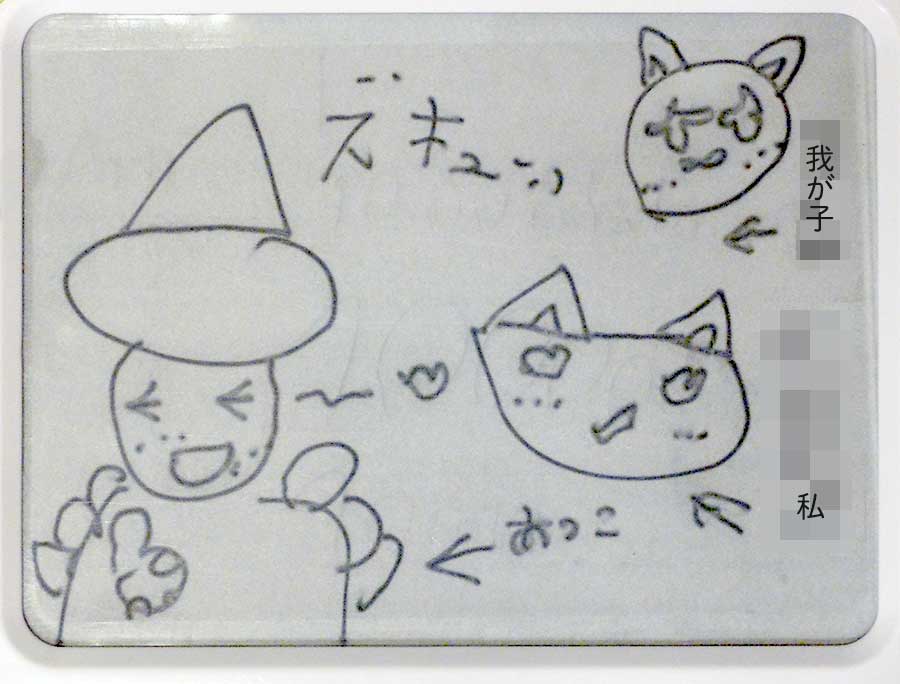 ズキューン
我が子
あっこ
私